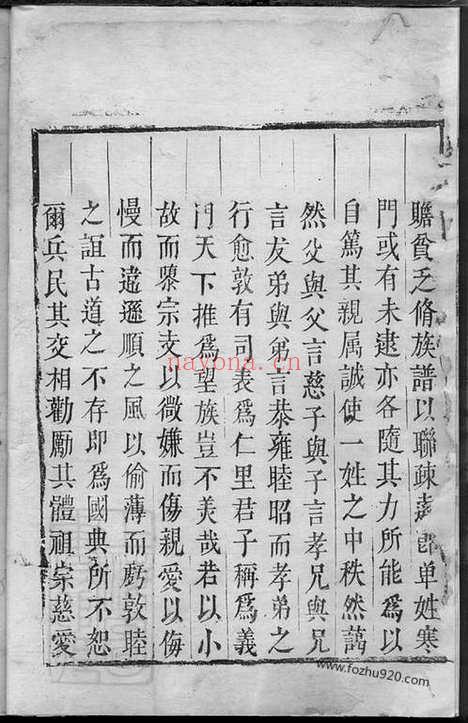 贍貧乏脩族譜以聯疎遠即单姓寒
門或有未逮亦各隨其力所能爲以
自篤其親属誠使一姓之中秩然藹
然父與父言慈子與子言孝兄與兄
言友弟與弟言恭雍睦昭而孝弟之
行愈敦有司表爲仁里君子稱爲義
門天下推爲望族豈不美哉若以小
故而隳宗支以微嫌而傷親愛以侮
慢而違遜順之風以偷薄而虧敦睦
之誼古道之不存即爲國典所不恕
爾兵民其交相勸勵共體祖宗慈愛
nayona.cn
www.fozhu920.com